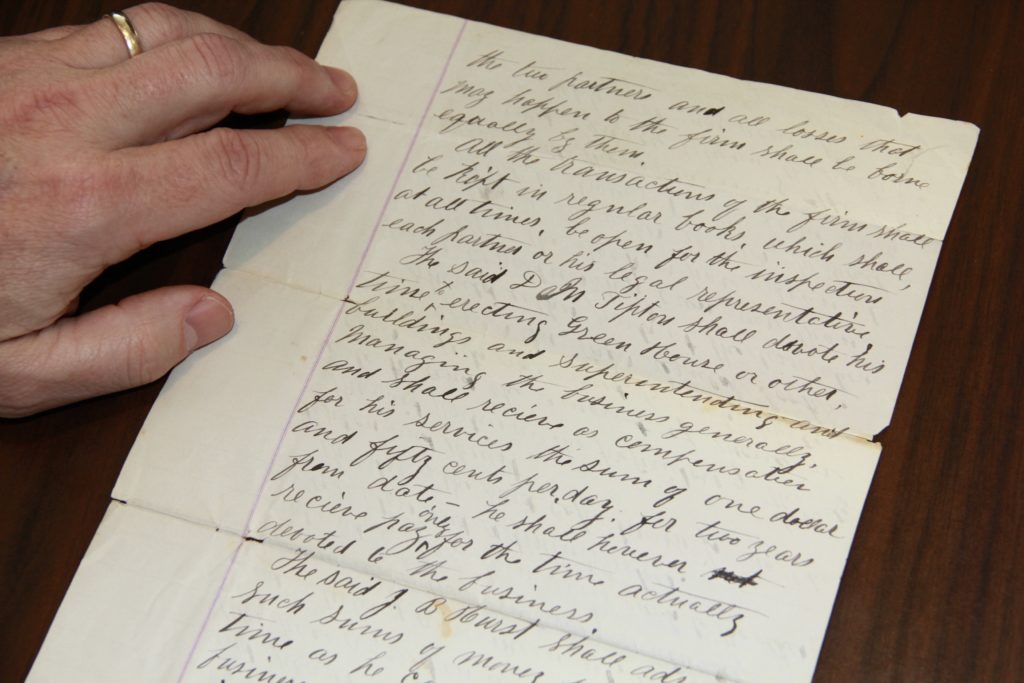 the two partners and all losses that
may happen to the firm shall be borne
equally by them.
All the transactions of the firm shall
be kept in regular books, which shall,
at all times, be open for the inspection
each partner or his legal representative,
The said D M Tipton shall devote his
time to erecting Green House or other,
buildings and superintending and
managing the business generally,
and shall recieve as compensation
for his services the sum of one dollar
and fifty cents per day. for two years
from date, he shall however not
recieve pay only for the time actually
devoted to the business.
The said J. B Hurst shall ad
such sums of money
time as he
business